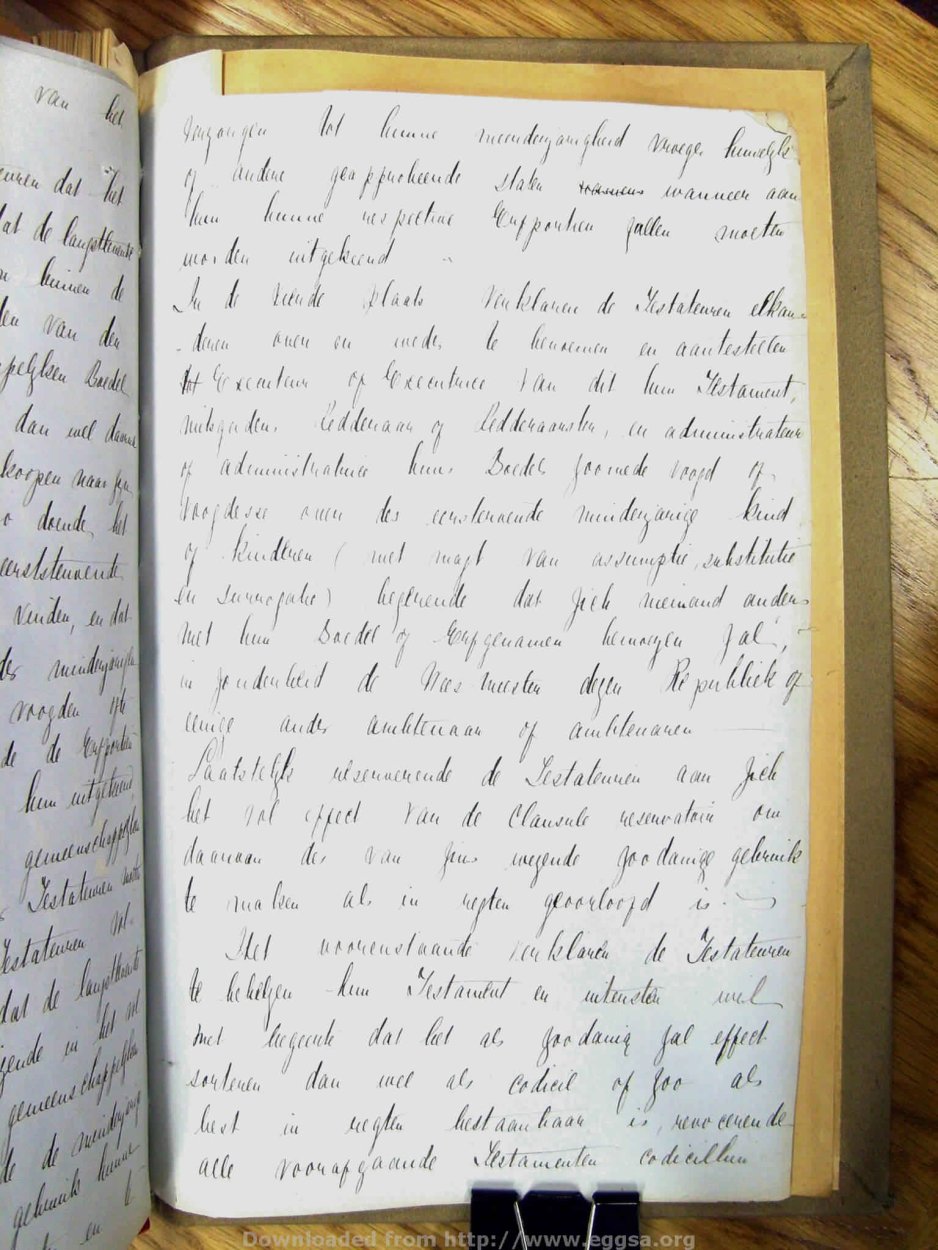 van het
dat het
dat de langstlevende
binnen de
van den
Boedel
dan wel
koopen naar
doende het
eerststervende
vinden, en dat
minderjarigen
voogden
de Erfportien
hun uitgekeerd
gemeenschappelijken
Testateuren
Testateuren
dat de langstlevende
in het
gemeenschappelijken
de minderjarige
gebruik hunne
en
tot hunne meerderjarigheid vroeger huwelijk
of andere geapprobeerde staten wanneer aan
hun hunne respective Erfportien zullen moeten
worden uitgekeerd
In de vierde plaats verklaren de Testateuren elkan-
-deren over en weder te benoemen en aantestellen
tot Executeur of Executrice van dit hun Testament,
mitsgaders Redderaar of Redderaarster, en administrateur
of administratrice huns Boedels zoomede voogd of
voogdesse over des eerstervende minderjarige kind
of kinderen (met magt van assumptie, substitutie
en surrogatie) begeerende dat zich niemand anders
met hun Boedel of Erfgenamen bemoeyen zal,
in zonderheid de Wees-meesters dezer Republiek of
eenige ander ambtenaar of ambtenaren
Laatstelyk reserveerende de Testateuren aan zich
het vol effect van de Clausule reservatoir om
daarvan des van zins wezende zoodanige gebruik
te maken als in regten geoorloofd is.
Het voorenstaande verklaren de Testateuren
te behelzen hun Testament en uitersten wil
met begeerte dat het als zoodanig zal effect
sorteren dan wel als codicil of zoo als
best in regten bestaanbaar is, revoceerende
alle voorafgaande Testamenten codicillen
Downloaded from http://www.eggsa.org